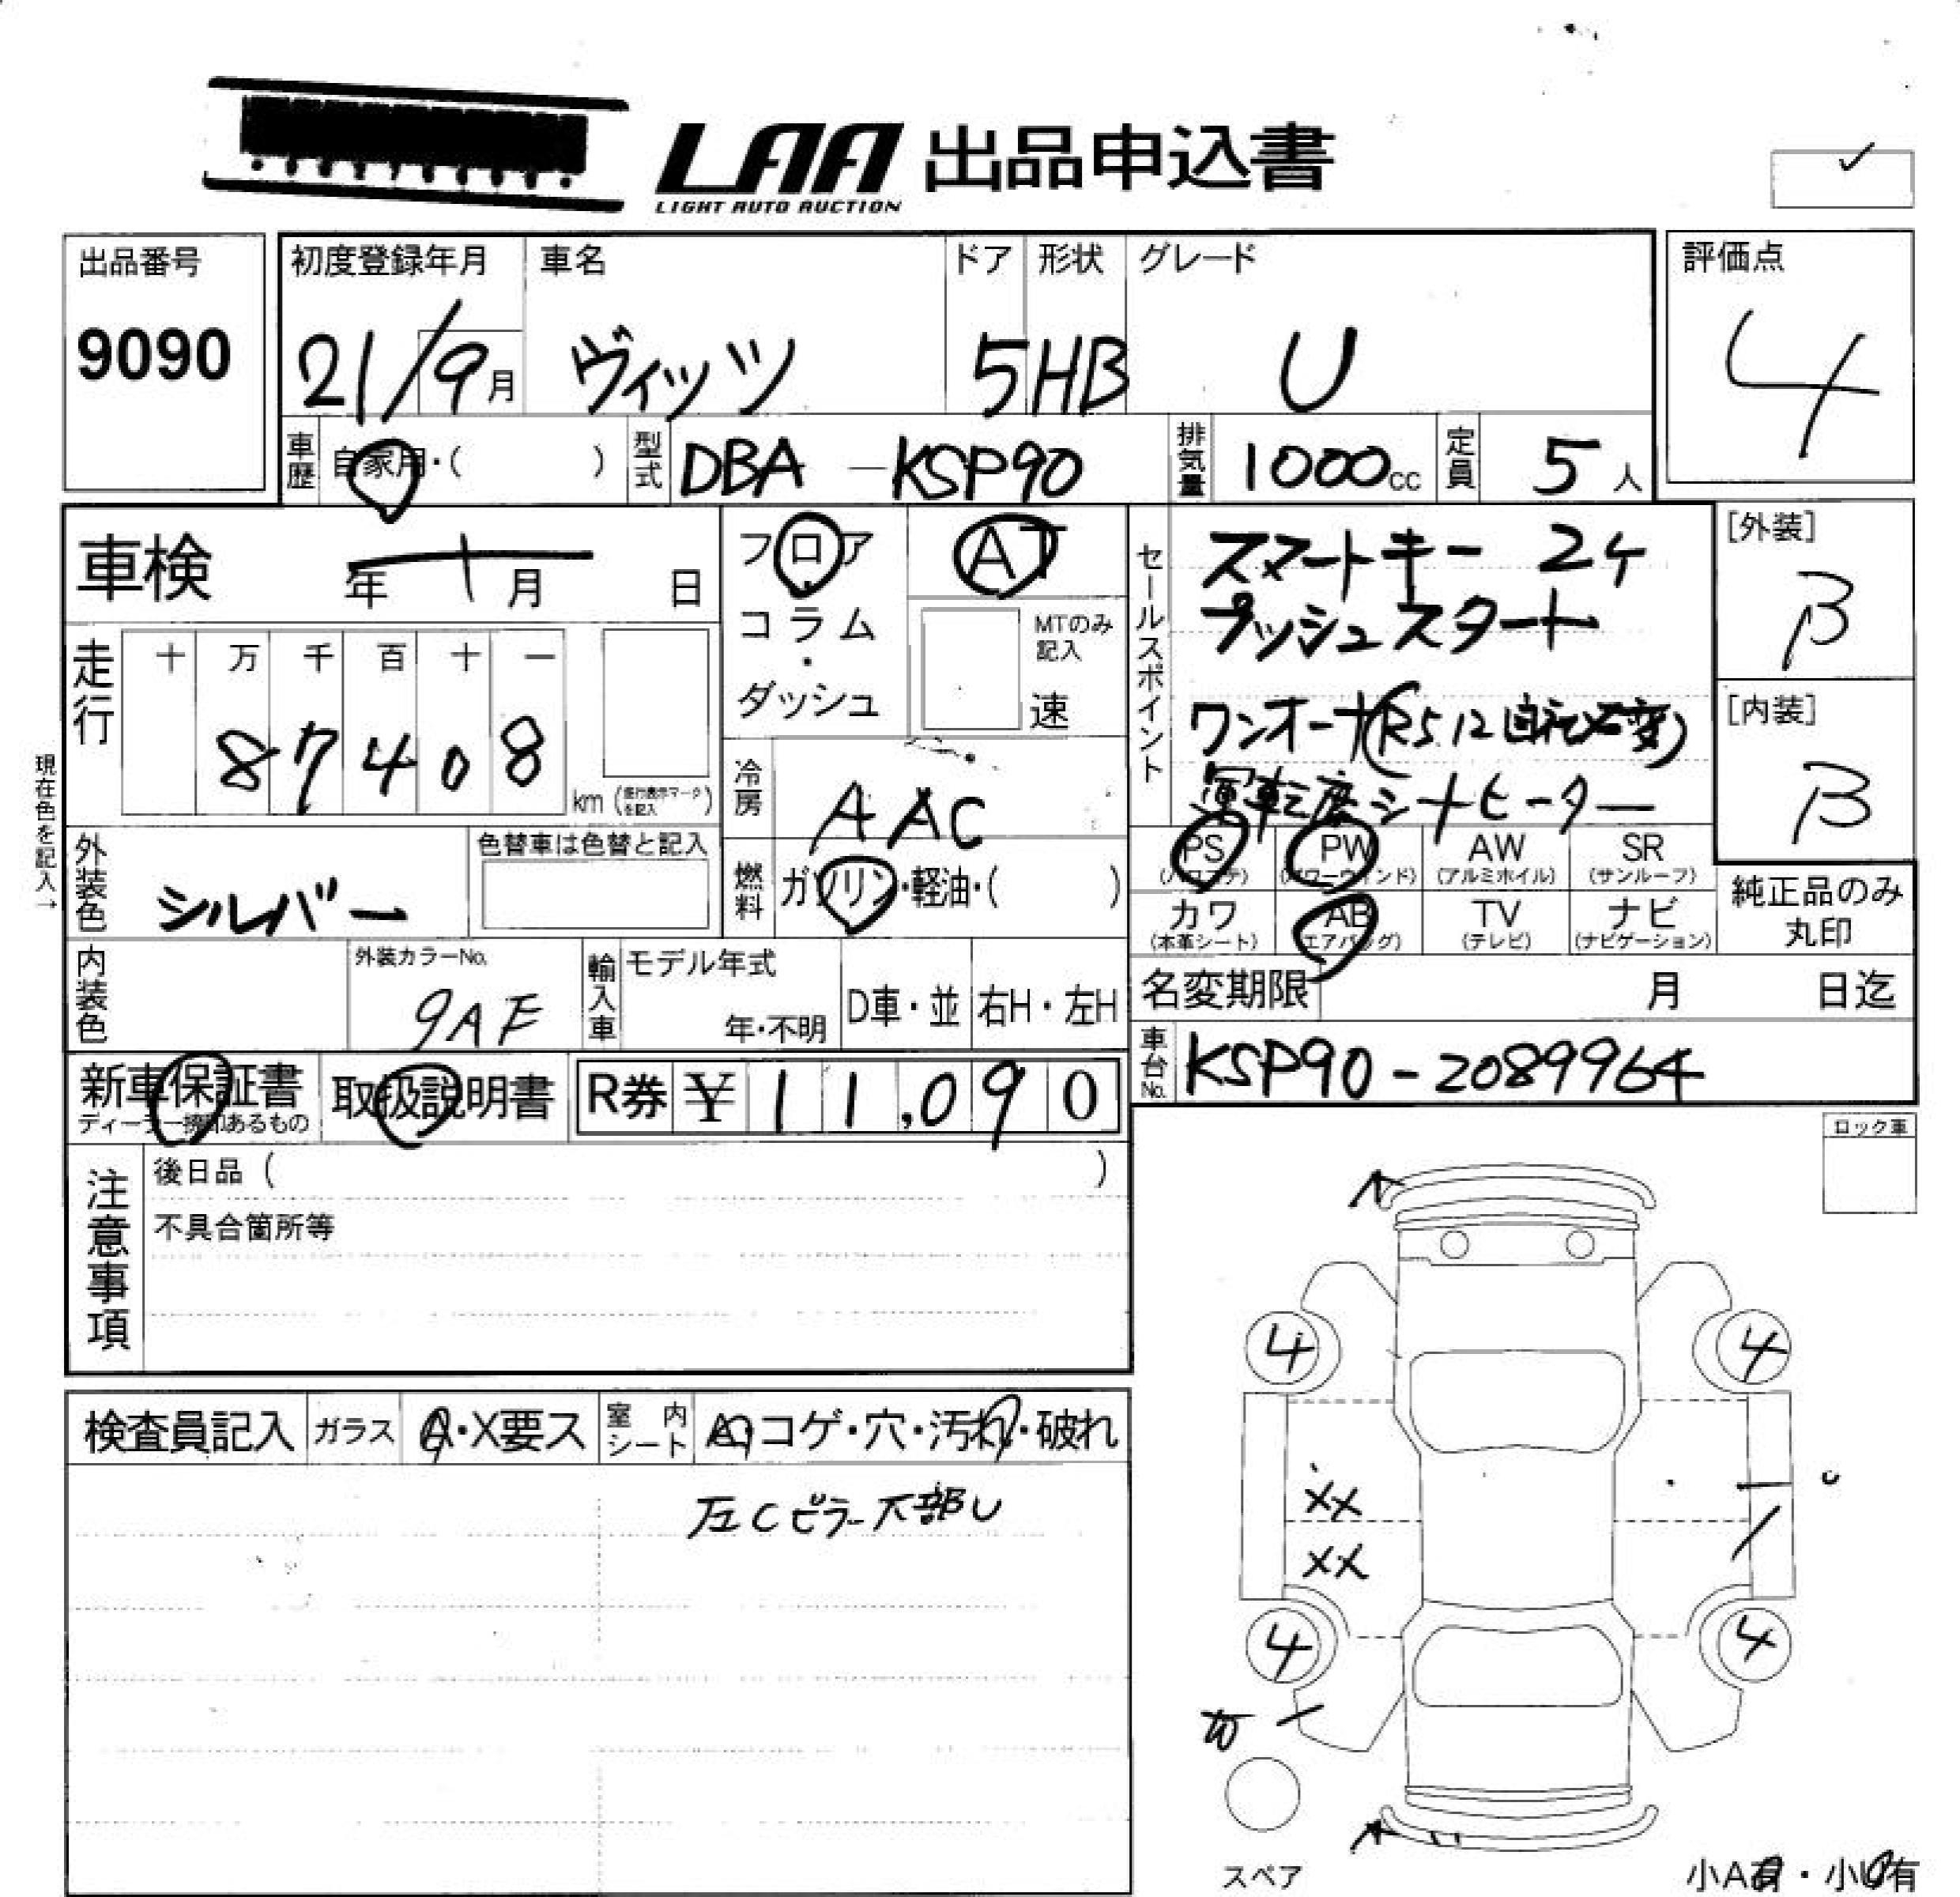 LAA 出品申込書
LIGHT AUTO AUCTION
出品番号
9090
初度登録年月 車名 ドア 形状 グレード
21/9月 ヴィッツ 5 HB U
評価点
4
車歴 自家用・( ) 型式 DBA-KSP90 排気量 1000cc 定員 5人
車検 年 月 日
フロア・コラム・ダッシュ
AT
MTのみ記入
速
セールスポイント
スマートキー 2ケ
プッシュスタート
ワンオーナ(R5.12
運転席シートヒーター
[外装]
B
[内装]
B
走行
十 万 千 百 十 一
8 7 4 0 8
km (走行表示マークを記入)
冷房 AAC
現在色を記入→
外装色 シルバー
色替車は色替と記入
燃料 ガソリン・軽油・( )
PS PW AW SR
(パワステ) (パワーウィンド) (アルミホイル) (サンルーフ)
カワ AB TV ナビ
(本革シート) (エアバッグ) (テレビ) (ナビゲーション)
純正品のみ
丸印
内装色
外装カラーNo.
9AF
輸入車 モデル年式
年・不明
D車・並 右H・左H
名変期限 月 日迄
車台No. KSP90-2089964
新車保証書
ディーラー捺印あるもの
取扱説明書
R券 ¥ 11,090
ロック車
注意事項
後日品 ( )
不具合箇所等
検査員記入 ガラス A・X要ス 室内シート コゲ・穴・汚れ・破れ
左Cピラー下部U
A
4 4
XX
XX
U
4 4
A
スペア
小A有・小U有